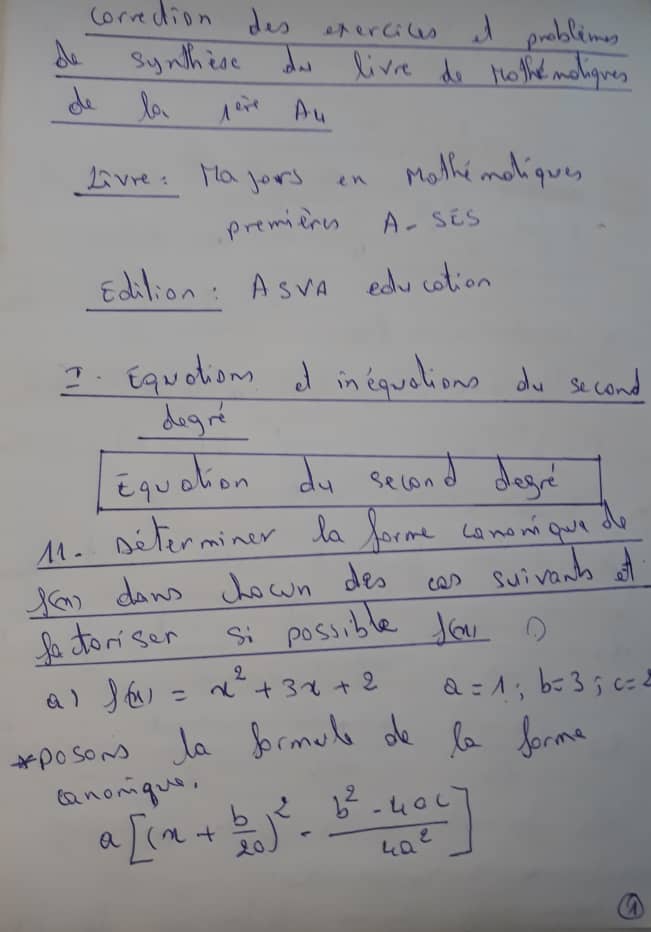 Correction des exercices et problèmes
de synthèse du livre de Mathématiques
de la 1ère A4
Livre : Majors en Mathématiques
premières A - SES
Edition : ASVA education
I. Equations et inéquations du second
degré
Equation du second degré
11. Déterminer la forme canonique de
f(x) dans chacun des cas suivants et
factoriser si possible f(x)
a) f(x) = x² + 3x + 2 a = 1 ; b = 3 ; c = 2
*posons la formule de la forme
canonique.
a [(x + b/2a)² - (b² - 4ac)/4a²]
1